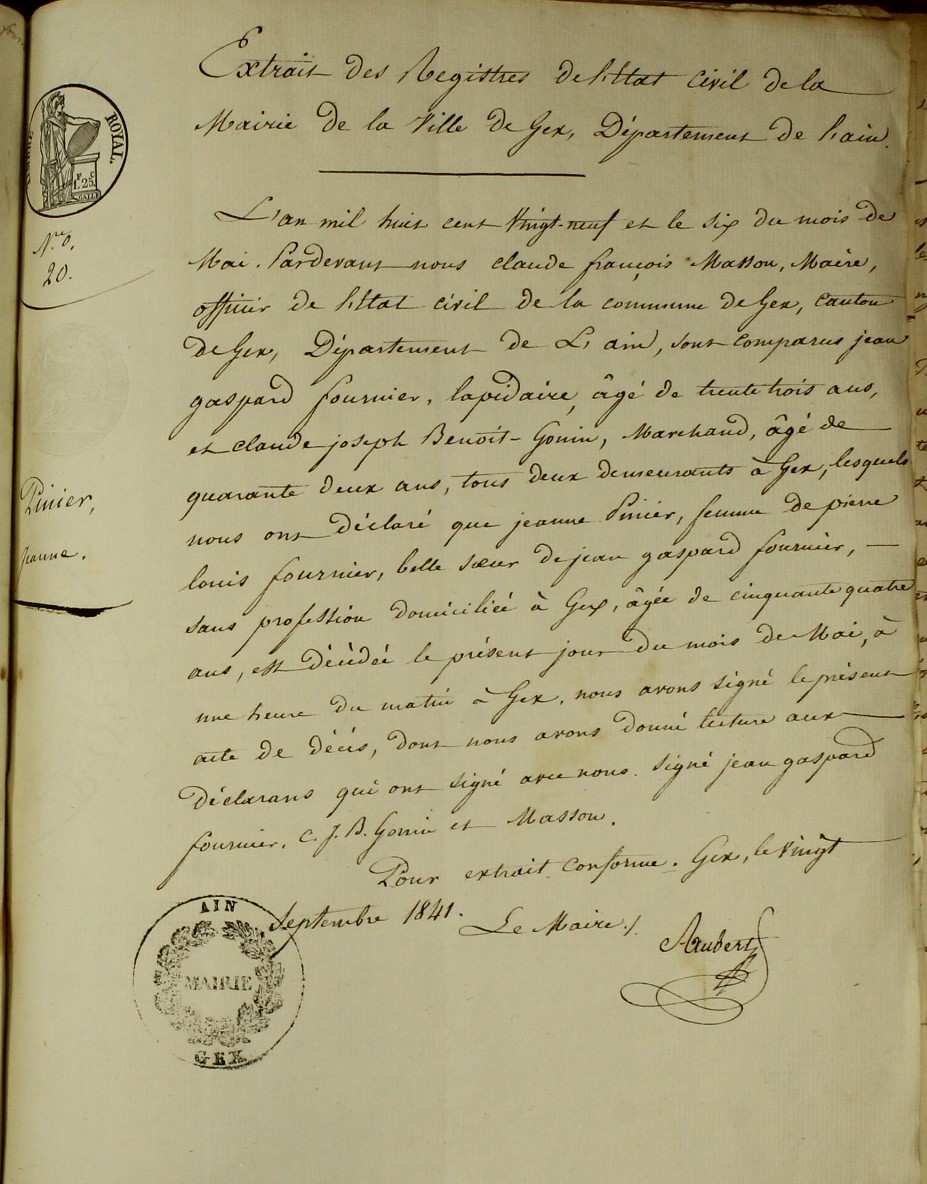 Extrait des Registres de l'Etat civil de la
Mairie de la Ville de Gex, Département de l'ain.
ROYAL.
1.F 25.C
N.re 8.
20.
L'an mil huit cent Vingt-neuf et le six du mois de
Mai. Pardevant nous claude françois Masson, Maire,
officier de l'Etat civil de la commune de Gex, canton
de Gex, Département de L'ain, sont comparus jean
gaspard fournier, lapidaire, âgé de trente trois ans,
et claude joseph Benoit-Gonin, Marchand, âgé de
quarante deux ans, tous deux demeurants à Gex, lesquels
nous ont déclaré que jeanne Pinier, femme de pierre
louis fournier, belle sœur de jean gaspard fournier, —
sans profession domiciliée à Gex, âgée de cinquante quatre
ans, est décédée le présent jour du mois de Mai, à
une heure du matin à Gex, nous avons signé le présent
acte de décès, dont nous avons donné lecture aux
déclarans qui ont signé avec nous. signé jean gaspard
fournier, C. J. B. Gonin et Masson.
Pinier,
jeanne.
Pour extrait conforme. Gex, le vingt
septembre 1841.
Le Maire /.
Aubert
AIN
MAIRIE
GEX